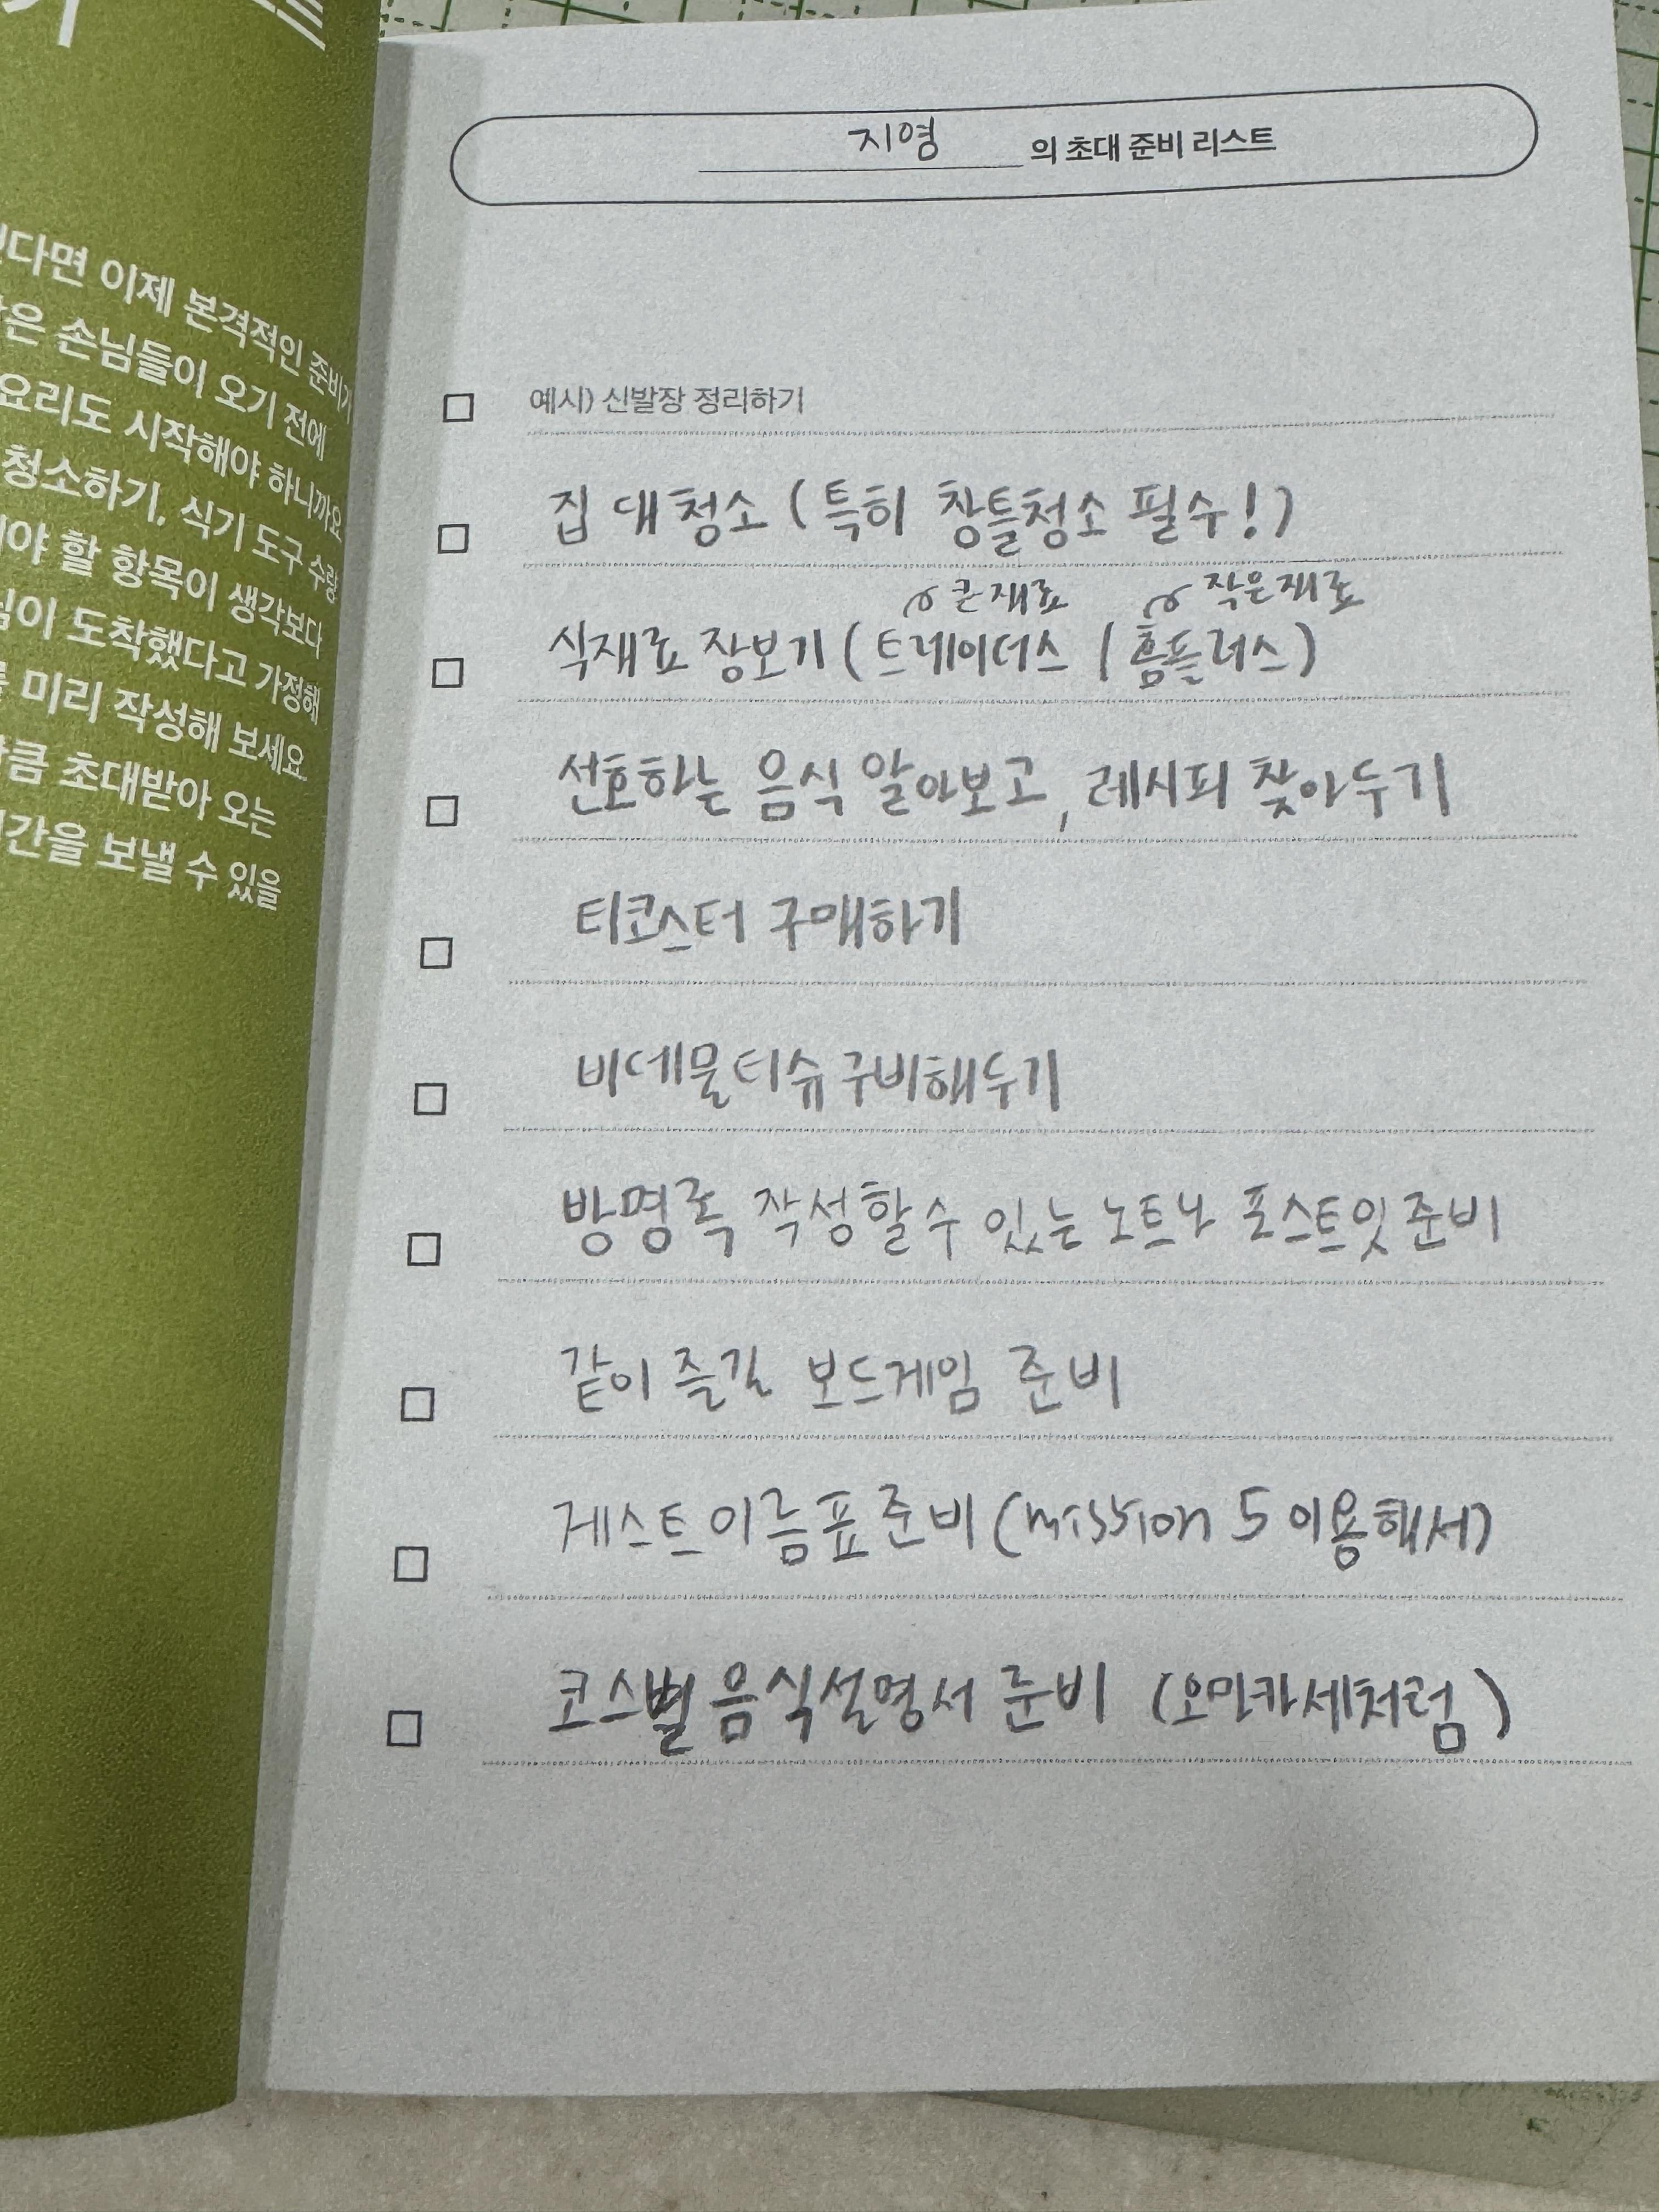 이제 본격적인 준비가
손님들이 오기 전에
요리도 시작해야 하니까요
청소하기, 식기 도구 수량
할 항목이 생각보다
도착했다고 가정해
미리 작성해 보세요.
초대받아 오는
보낼 수 있을
지영 의 초대 준비 리스트
예시) 신발장 정리하기
집 대청소 (특히 창틀청소 필수!)
큰재료 작은재료
식재료 장보기 (트레이더스 / 홈플러스)
선호하는 음식 알아보고, 레시피 찾아두기
티코스터 구매하기
비데물티슈 구비해두기
방명록 작성할 수 있는 노트나 포스트잇 준비
같이 즐길 보드게임 준비
게스트 이름표 준비 (mission 5 이용해서)
코스별 음식설명서 준비 (오마카세처럼)